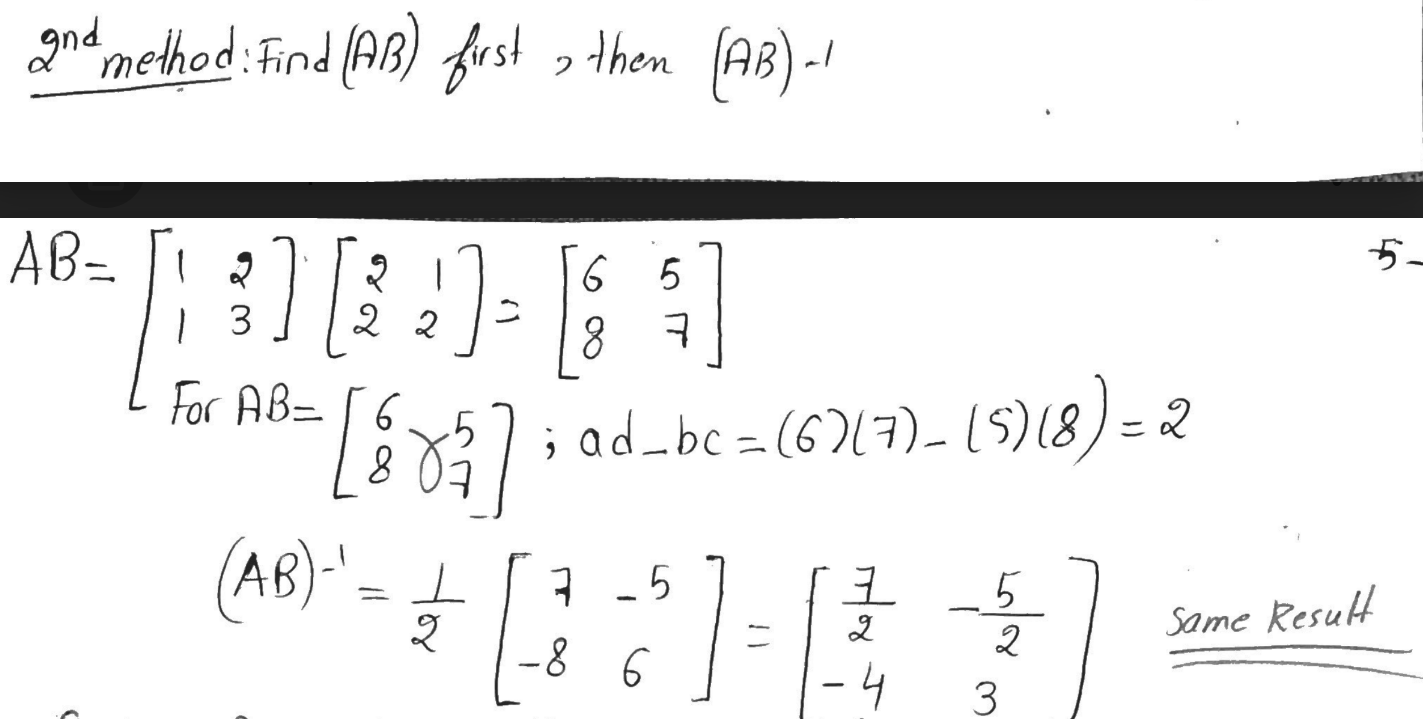 2nd method: Find (AB) first, then (AB)-1
-5-
AB= [1 2; 1 3] [2 1; 2 2] = [6 5; 8 7]
For AB= [6 5; 8 7] ; ad-bc = (6)(7) - (5)(8) = 2
(AB)-1 = 1/2 [7 -5; -8 6] = [7/2 -5/2; -4 3] Same Result